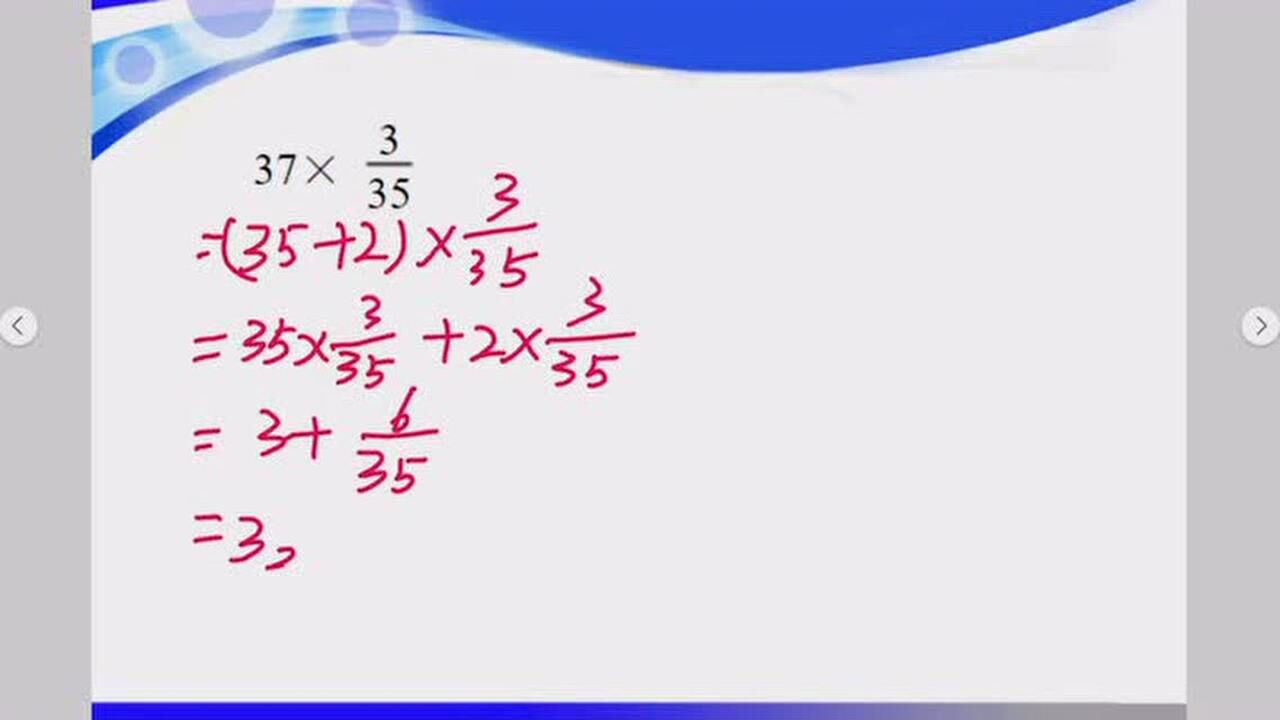 37× 3/35
=(35+2)×3/35
=35×3/35+2×3/35
=3+6/35
=3